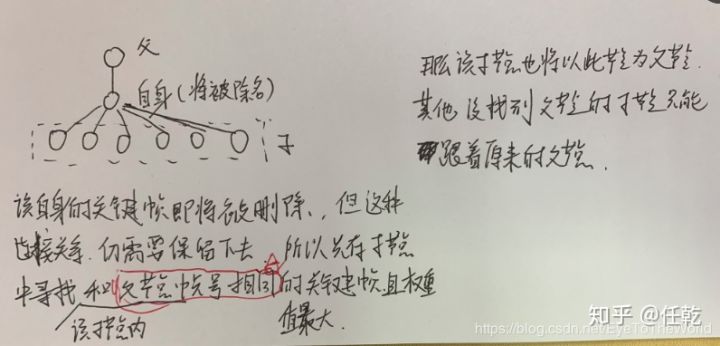 父
自身(将被除名)
子
该自身的关键帧即将被删除,但这种
连接关系,仍需要保留下去,所以先在子节点
中寻找和父节点帧号相同的关键建帧且权重
值最大.
该子节点内
那么该子节点也将以此节点为父节点.
其他没找到父节点的子节点只能
跟着原来的父节点.
知乎 @任乾
https://blog.csdn.net/EyeToTheWorld